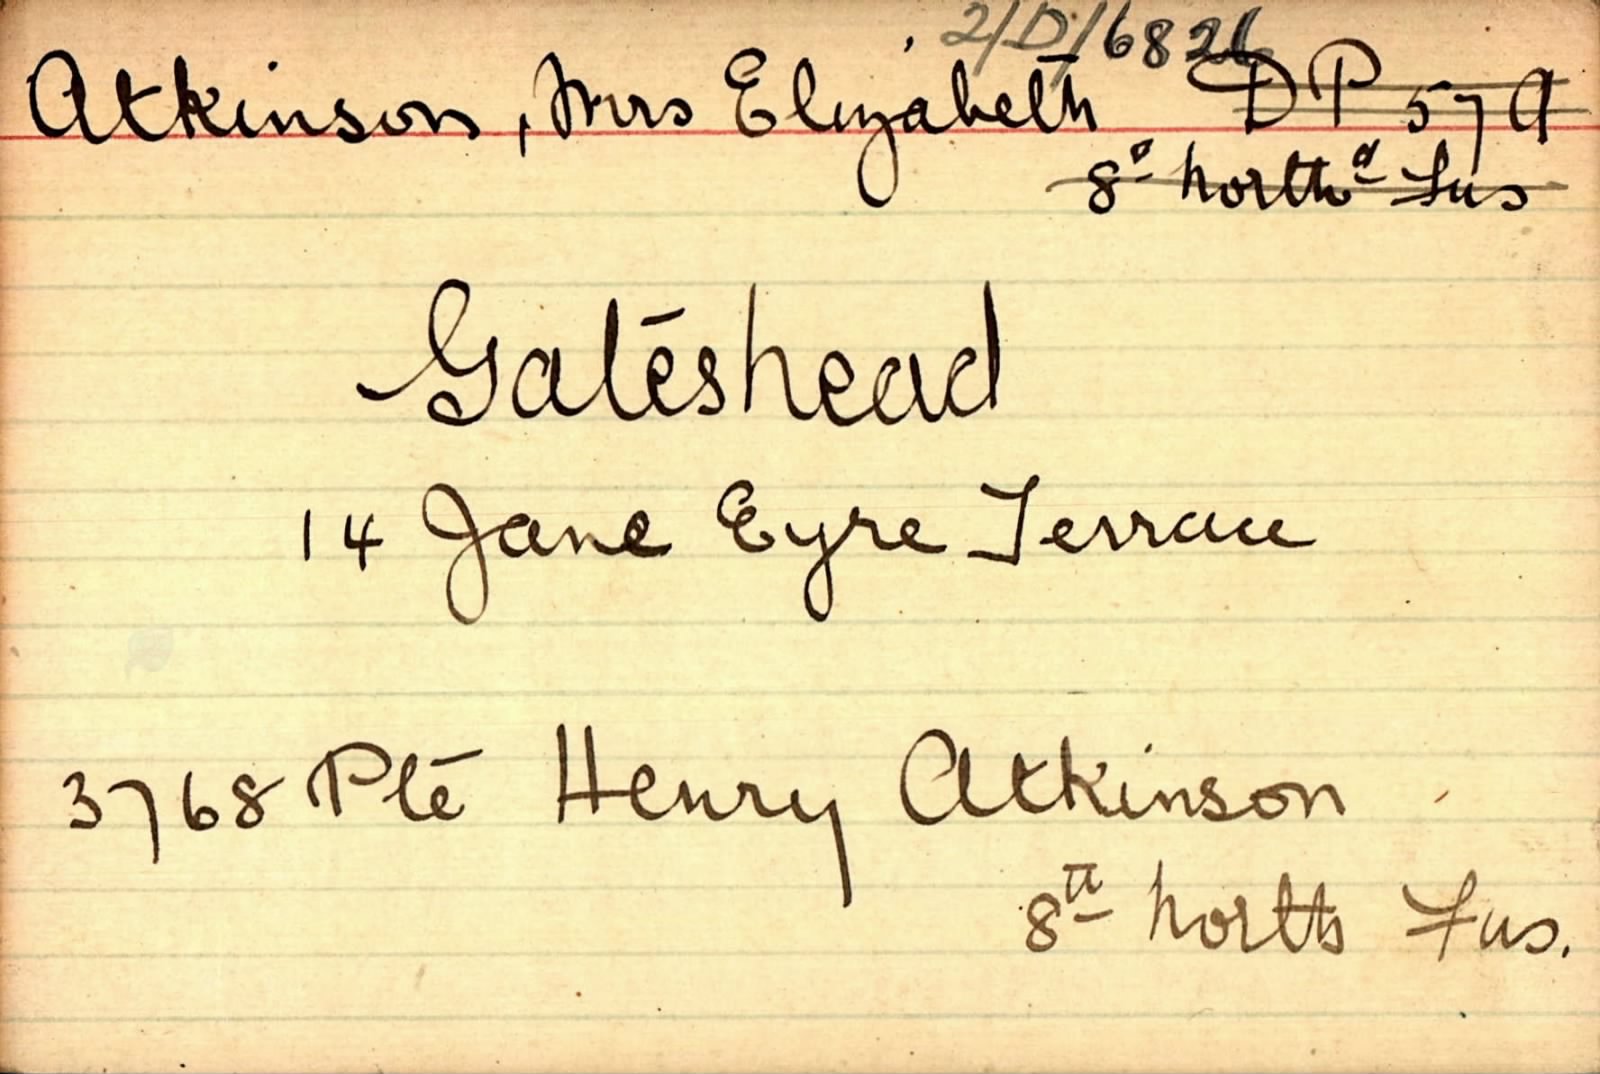 2/D/6821
Atkinson, Mrs Elizabeth DP 57 A
8th North'd Fus
Gateshead
14 Jane Eyre Terrace
3768 Pte Henry Atkinson
8th North Fus.